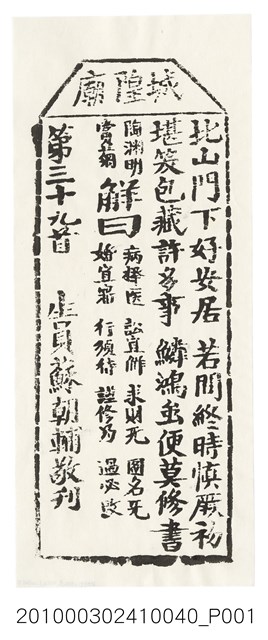 城隍廟
北山門下好安居 若問終時慎厥初
堪笑包藏許多事 鱗鴻虽便莫修書
陶淵明
賞菊
解曰
病擇医 訟宜解 求財无 圖名无
婚宜審 行須待 謹修为 過必改
第三十九首 生員蘇朝輔敬刊
201000302410040_P001